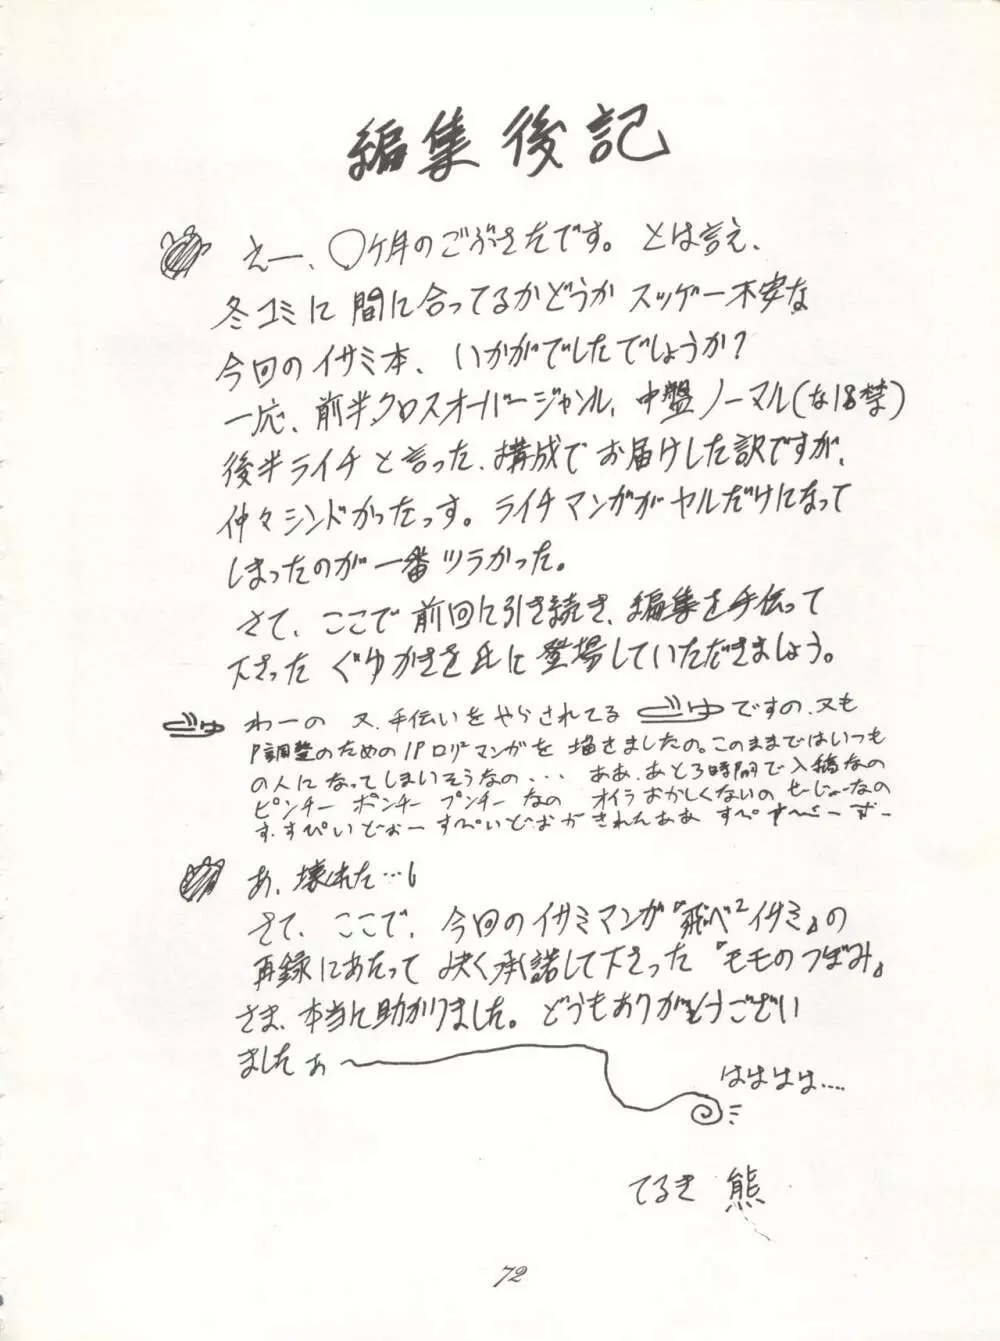 編集後記
えー、〇ケ月のごぶさたです。とは言え、
冬コミに間に合ってるかどうかスッゲー不安な
今回のイサミ本、いかがでしたでしょうか?
一応、前半クロスオーバージャンル、中盤ノーマル(な18禁)
後半ライチと言った、構成でお届けした訳ですが、
仲々シンドかったっす。ライチマンガがヤルだけになって
しまったのが一番ツラかった。
さて、ここで前回に引き続き、編集を手伝って
下さったぐゆかささ氏に登場していただきましょう。
わーの 又、手伝いをやらされてる ですの、又も
P調整のための1Pロリマンガを描きましたの。このままではいつも
の人になってしまいそうなの... ああ、あと3時間で入稿なの
ピンチー ポンチー プンチー なの オイラおかしくないの
す、すぴいどおー すぴいどおがされんああ
あ、壊れた…
さて、ここで、今回のイサミマンガ『飛べ2イサミ』の
再録にあたって快く承諾して下さった『モモのつぼみ』
さま、本当に助かりました。どうもありがとうござい
ましたぁ〜
はははは....
てるき熊
72